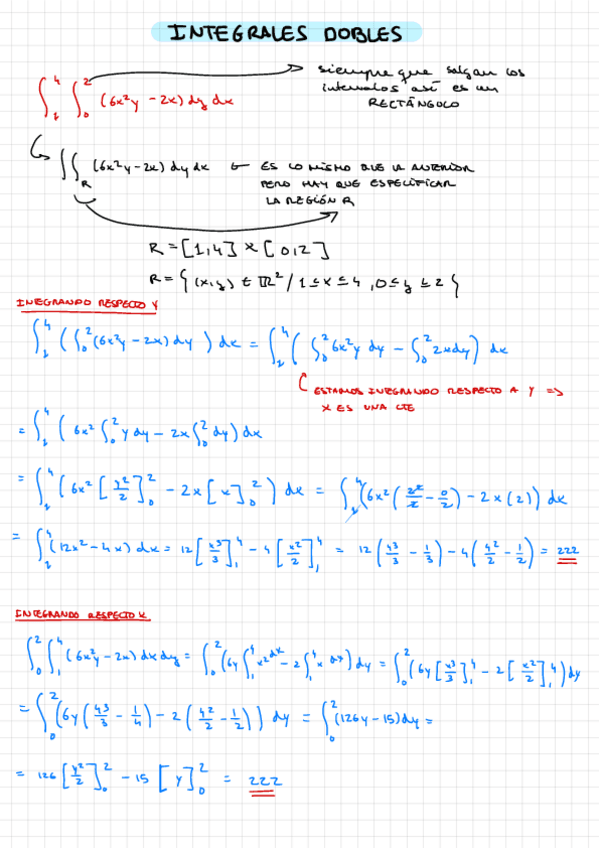 INTEGRALES DOBLES
∫₁⁴ ∫₀² (6x²y - 2x) dy dx
siempre que salgan los
intervalos así es un
RECTÁNGULO
∬_R (6x²y - 2x) dy dx ← ES LO MISMO QUE LA ANTERIOR
PERO HAY QUE ESPECIFICAR
LA REGIÓN R
R = [1,4] x [0,2]
R = { (x,y) ∈ ℝ² / 1 ≤ x ≤ 4, 0 ≤ y ≤ 2 }
INTEGRANDO RESPECTO Y
∫₁⁴ ( ∫₀² (6x²y - 2x) dy ) dx = ∫₁⁴ ( ∫₀² 6x²y dy - ∫₀² 2x dy ) dx
ESTAMOS INTEGRANDO RESPECTO A Y =>
X ES UNA CTE
= ∫₁⁴ ( 6x² ∫₀² y dy - 2x ∫₀² dy ) dx
= ∫₁⁴ ( 6x² [y²/2]₀² - 2x [x]₀² ) dx = ∫₁⁴ (6x² (2²/2 - 0/2) - 2x (2)) dx
= ∫₁⁴ (12x² - 4x) dx = 12 [x³/3]₁⁴ - 4 [x²/2]₁⁴ = 12 (4³/3 - 1/3) - 4 (4²/2 - 1/2) = 222
INTEGRANDO RESPECTO X
∫₀² ∫₁⁴ (6x²y - 2x) dx dy = ∫₀² (6y ∫₁⁴ x² dx - 2 ∫₁⁴ x dx) dy = ∫₀² (6y [x³/3]₁⁴ - 2 [x²/2]₁⁴) dy
= ∫₀² (6y (4³/3 - 1/4) - 2 (4²/2 - 1/2)) dy = ∫₀² (126y - 15) dy =
= 126 [y²/2]₀² - 15 [y]₀² = 222